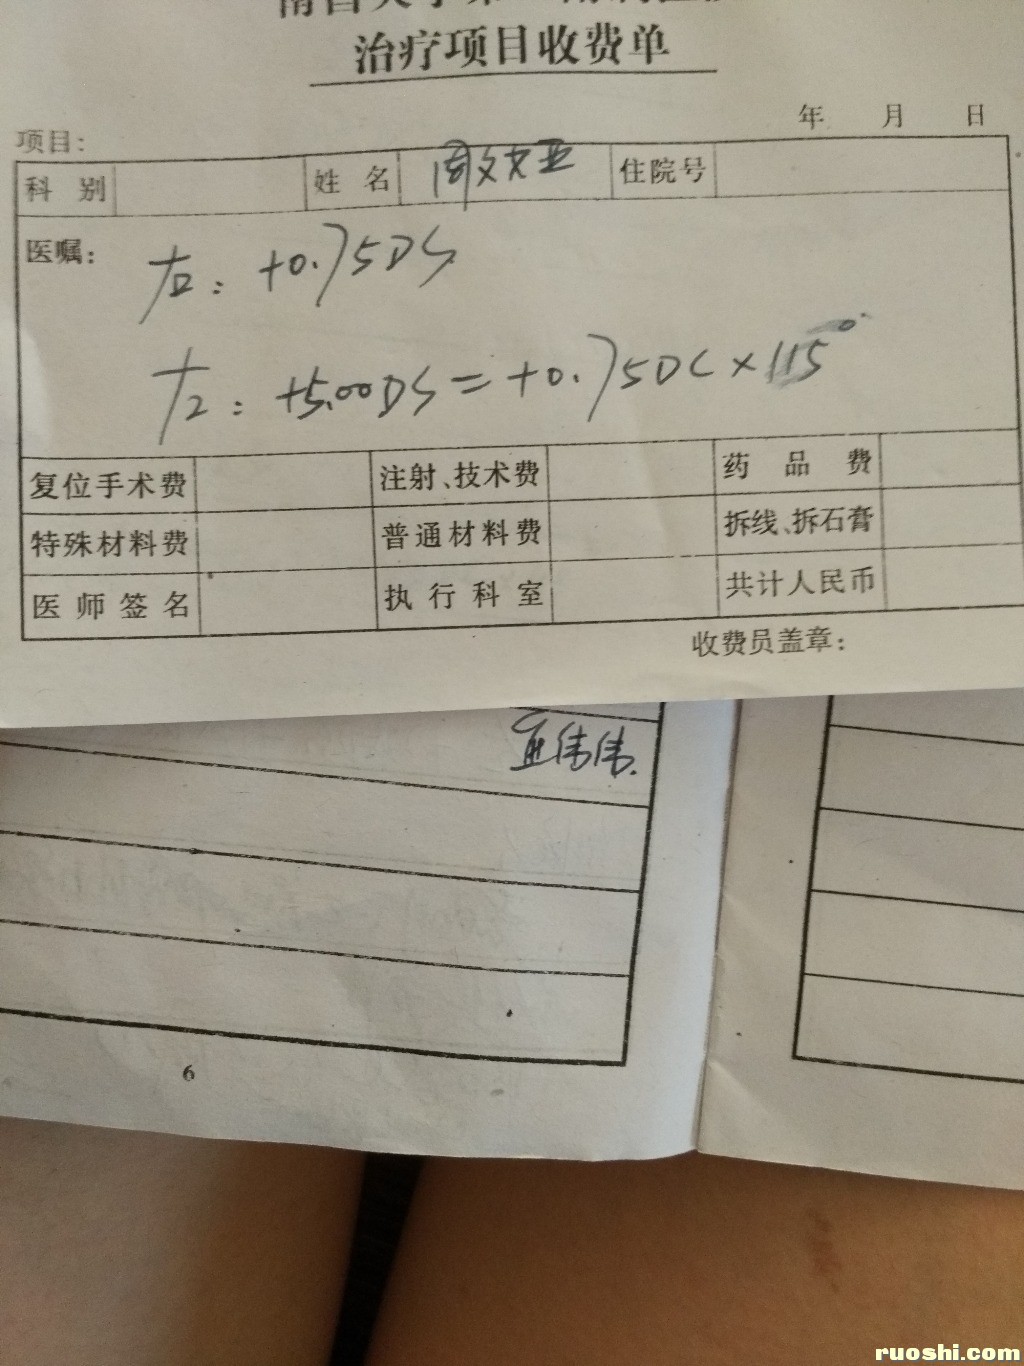 治疗项目收费单
年 月 日
项目:
科别 姓名 住院号
医嘱: 右: +0.75DS
左: +5.00DS = +0.75DC×115°
复位手术费 注射、技术费 药品费
特殊材料费 普通材料费 拆线、拆石膏
医师签名 执行科室 共计人民币
收费员盖章:
6
ruoshi.com